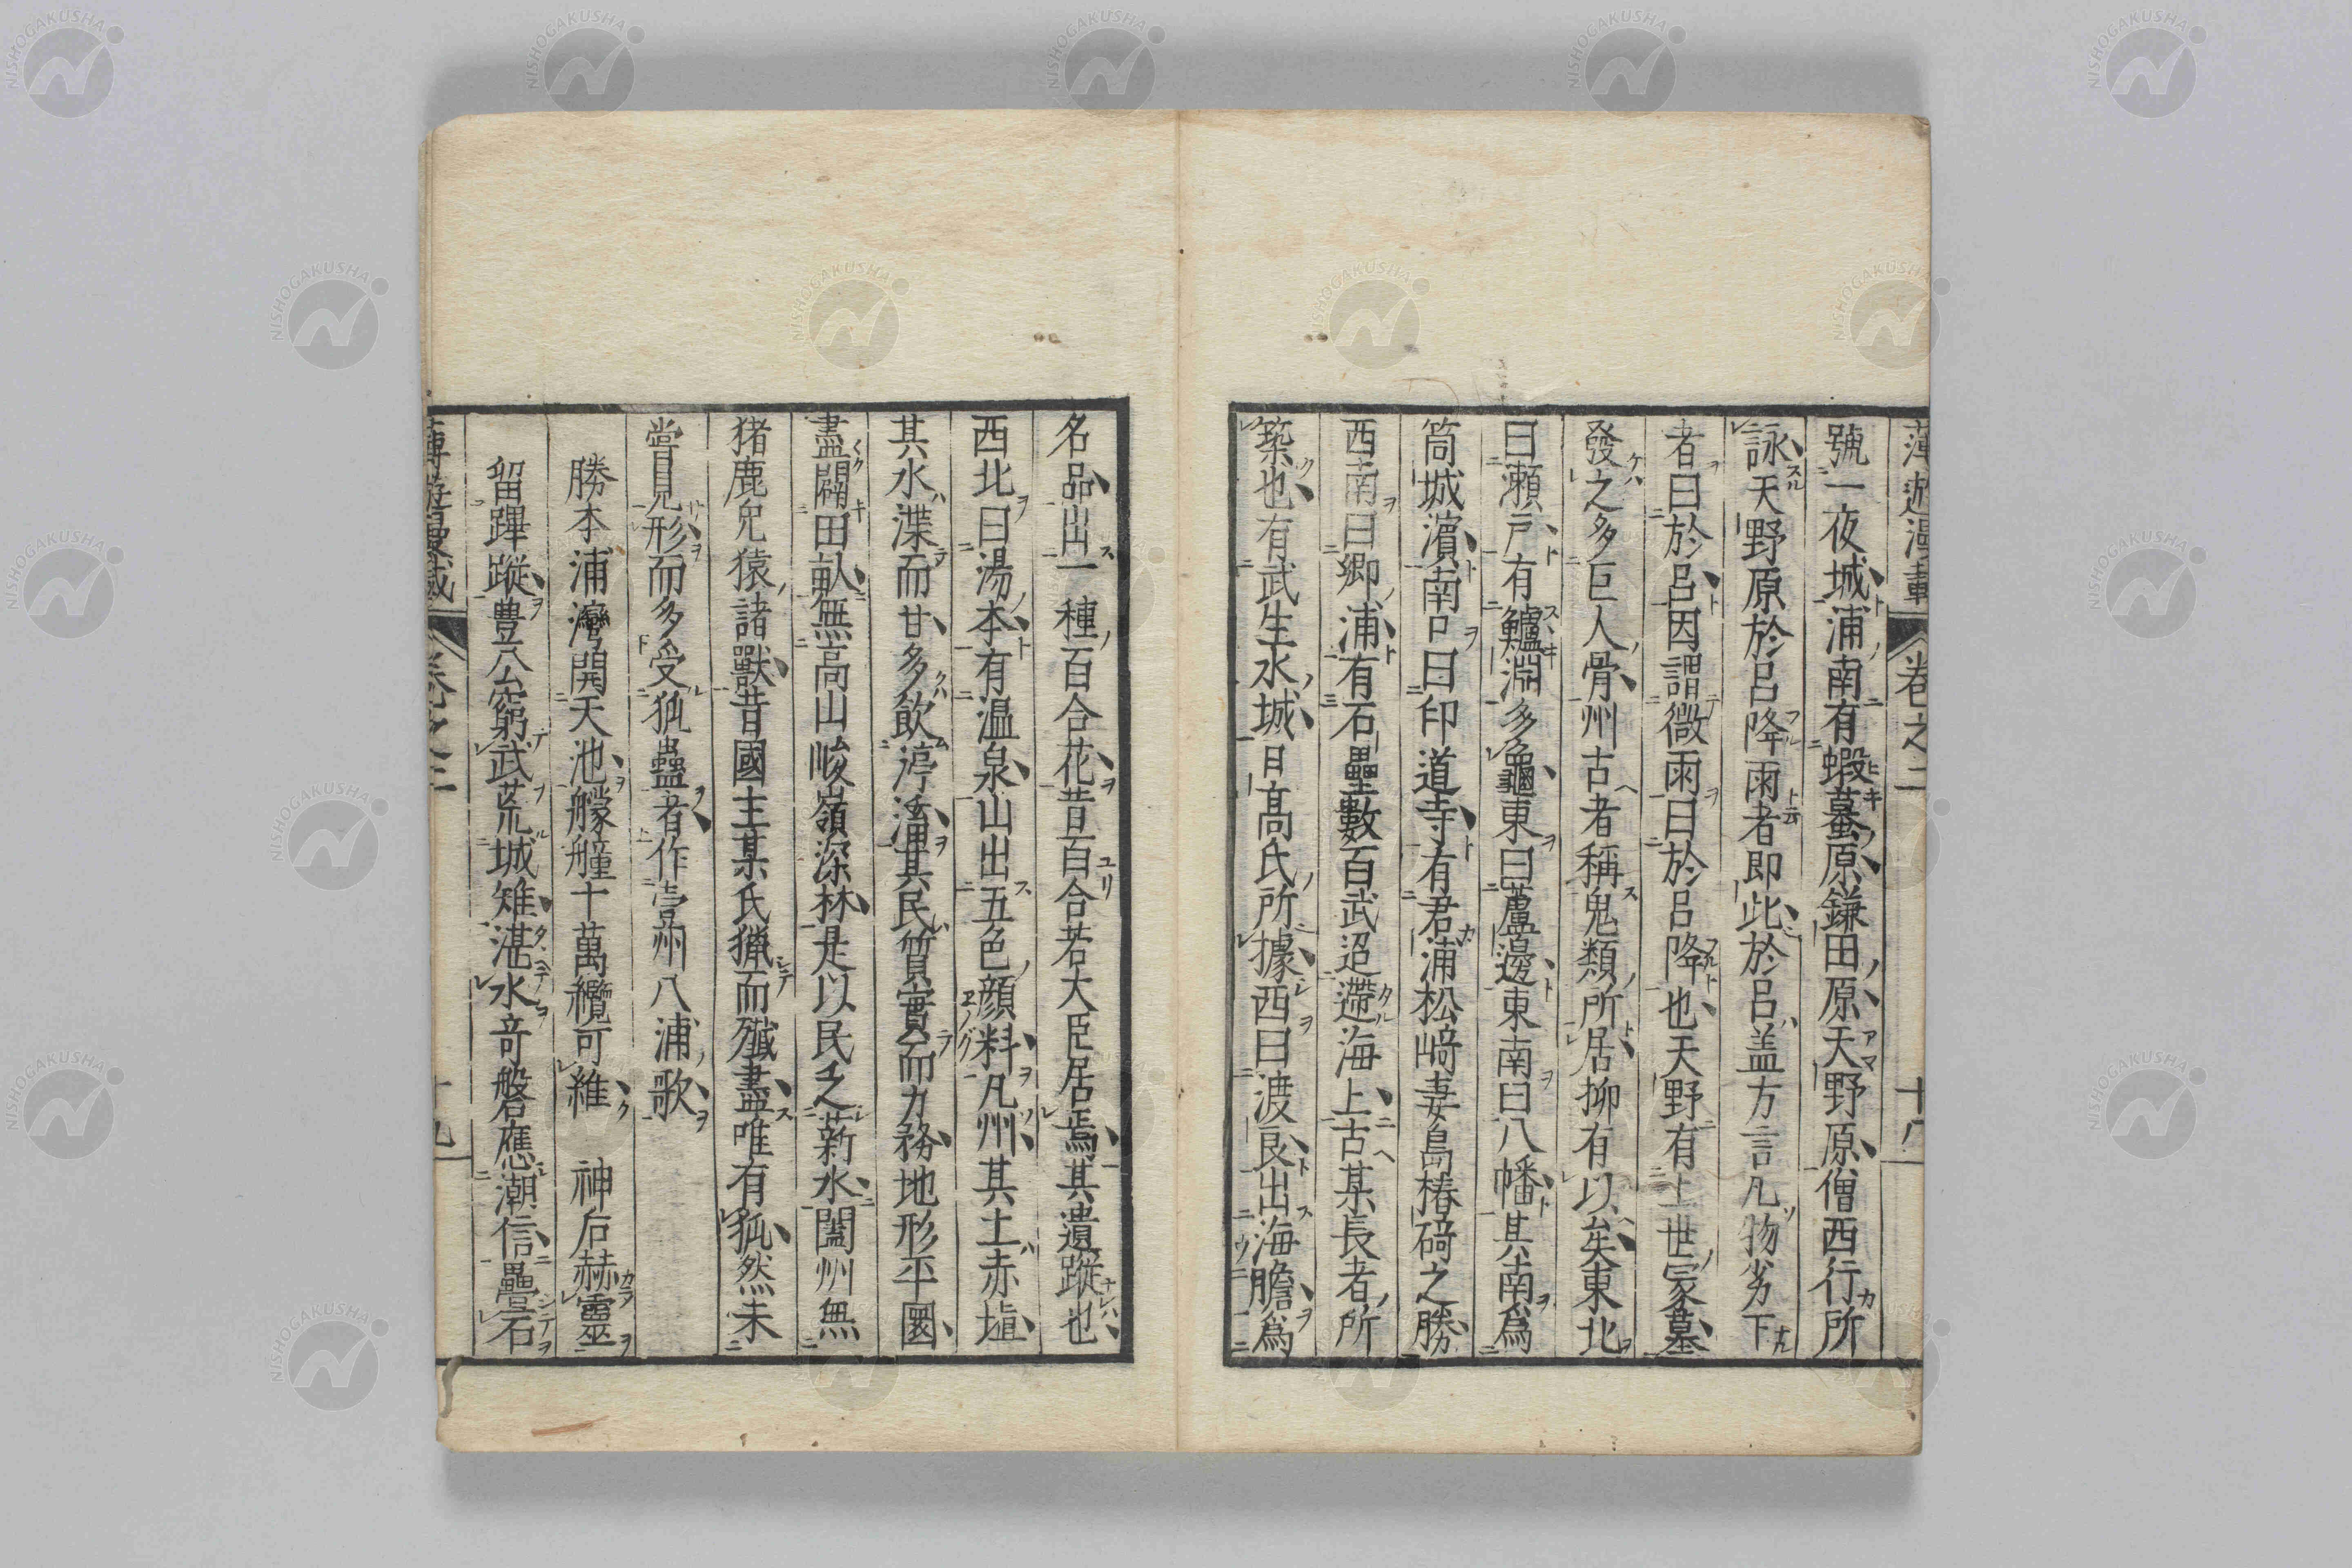 薄遊漫載 卷之二 十八
號一夜城浦南有蝦蟇原鎌田原天野原僧西行所
詠天野原於呂降雨者即此於呂盖方言凡物劣下
者曰於呂因謂微雨曰於呂降也天野有上世冢墓
發之多巨人骨州古者稱鬼類所居抑有以矣東北
曰瀬戸有鱸淵多龜東曰蘆邊東南曰八幡其南爲
筒城濵南曰印道寺有君浦松﨑妻島椿碕之勝
西南曰郷浦有石壘數百武迢遰海上古某長者所
築也有武生水城日髙氏所據西曰渡良出海膽爲
名品出一種百合花昔百合若大臣居焉其遺蹤也
西北曰湯本有温泉山出五色顔料凡州其土赤埴
其水渫而甘多飲渟滀其民質實而力務地形平圓
盡闢田畒無高山峻嶺深林是以民乏薪水闔州無
猪鹿兕猿諸獸昔國主某氏獵而殱盡唯有狐然未
嘗見形而多受狐蠱者作壹州八浦歌
勝本浦灣開天池艨艟十萬纜可維 神后赫靈
留蹕蹤豊公窮武荒城雉湛水竒磐應潮信疊石